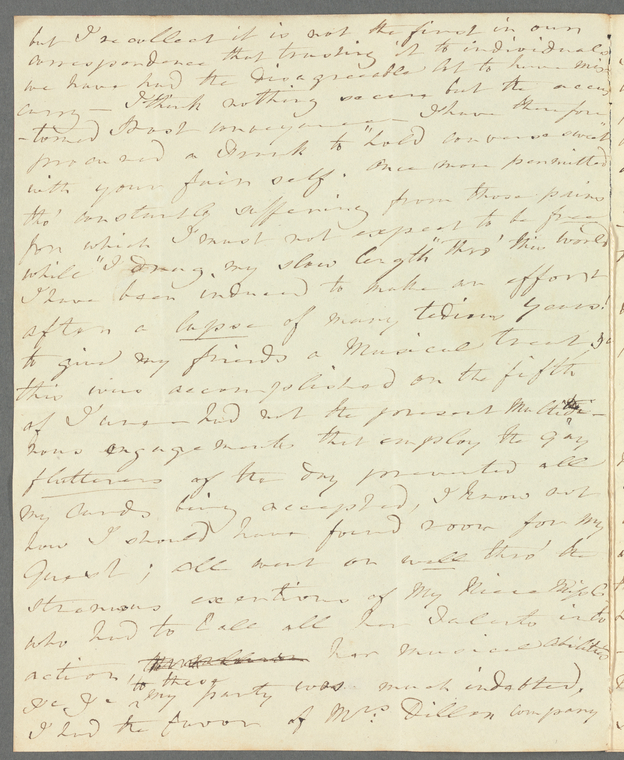 but I recollect it is not the first in our
correspondence that trusting it to individuals
we have had the disagreeable to have mis
carry — I think nothing secure but the accus
-tomed Post conveyance — I have therefore
procured a Frank to "hold converse sweet"
with your fair self. Once more permitted
tho' constantly suffering from those pains
from which I must not expect to be free
while "I drag my slow length" thro' this World
I have been induced to make an effort
after a lapse of many tedious years!
to give my friends a Musical treat,
this was accomplished on the fifth
of June — had not the present Multitudi-
nous engagements that employ the gay
flutterers of the day prevented all
my cards being accepted, I know not
how I should have found room for my
Guests; all went on well thro' the
strenuous exertions of My Niece
who had to Call all her Talents into
action, her musical abilities
&c &c to these My party was much indebted,
I had the favor of Mrs. Dillon company